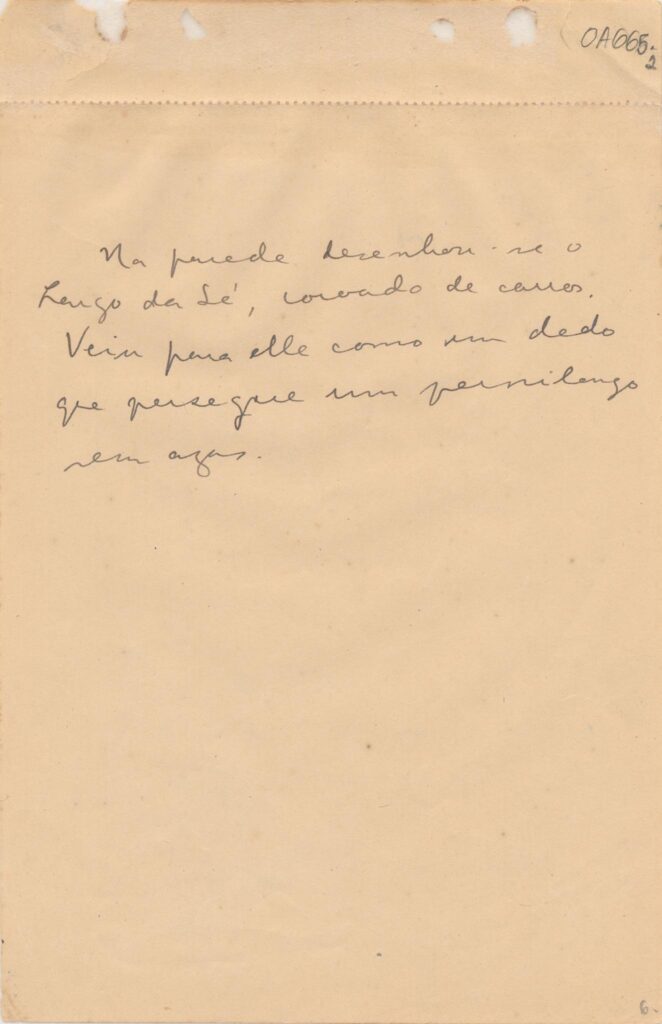 OA665.
2
Na parede desenhou-se o
Largo da Sé, coroado de carros.
Veiu para elle como um dedo
que persegue um pernilongo
sem azas.
6.